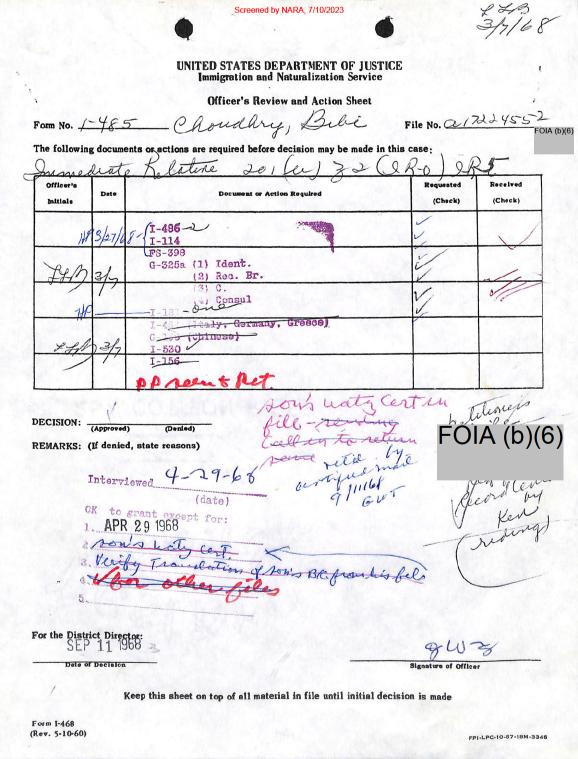 Screened by NARA, 7/10/2023
LLB
3/7/68
UNITED STATES DEPARTMENT OF JUSTICE
Immigration and Naturalization Service
Officer's Review and Action Sheet
Form No. I-485 Choudhry, Bibi File No. a17224552
FOIA (b)(6)
The following documents or actions are required before decision may be made in this case:
Immediate Relative 201(b) IR-0 IR5
Officer's Initials Date Document or Action Required Requested (Check) Received (Check)
I-486
HF 3/27/68 I-114
FS-398
G-325a (1) Ident.
LLB 3/7 (2) Rec. Br.
(3) C.
(4) Consul
HF I-181 one
(Italy, Germany, Greece)
(Chinese)
LLB 3/7 I-530
I-156
PP seen & Ret.
son's natz Cert in
file - pending
call in to return
same
retd. by
certified mail
9/11/68
GWT
petitioner's
DECISION:
(Approved) (Denied)
REMARKS: (If denied, state reasons)
FOIA (b)(6)
record
by
Ken
(reding)
Interviewed 4-29-68
(date)
OK to grant except for:
1. APR 29 1968
2. son's natz cert
3. Verify Translation of son's BC from his file
4. for other files
5.
For the District Director:
SEP 11 1968
Date of Decision
Signature of Officer
Keep this sheet on top of all material in file until initial decision is made
Form I-468
(Rev. 5-10-60)
FPI-LPC-10-67-18M-3346